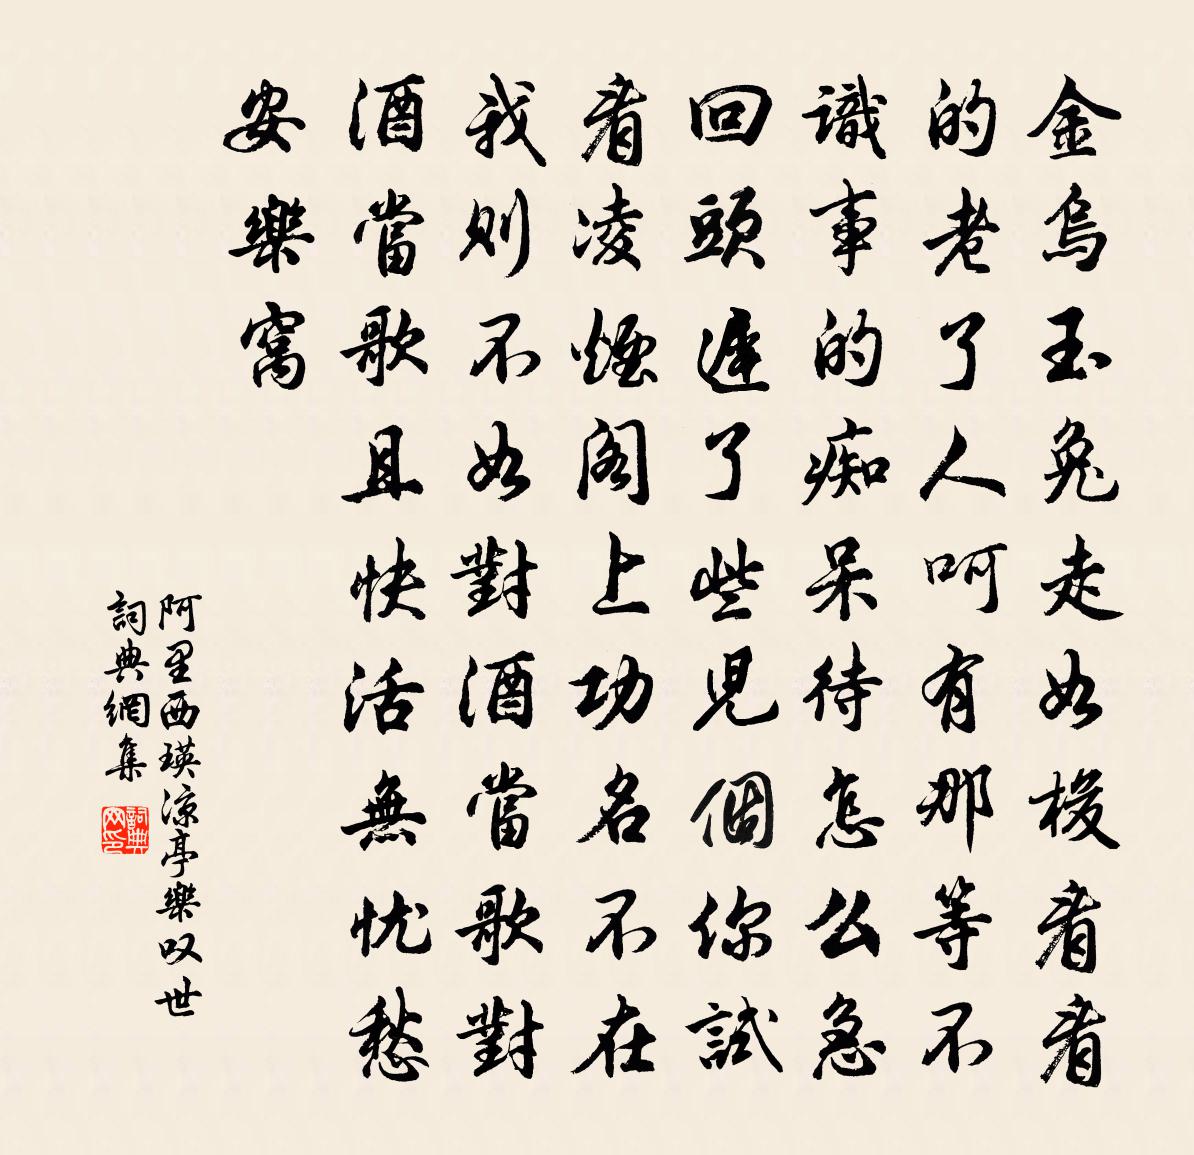 金烏玉兔走如梭看看
的老了人呵有那等不
識事的痴呆待怎么急
回頭遲了些兒個你試
看凌煙閣上功名不在
我則不如對酒當歌對
酒當歌且快活無忧愁
安樂窩
阿里西瑛凉亭樂叹世
詞典網集
詞典
网印